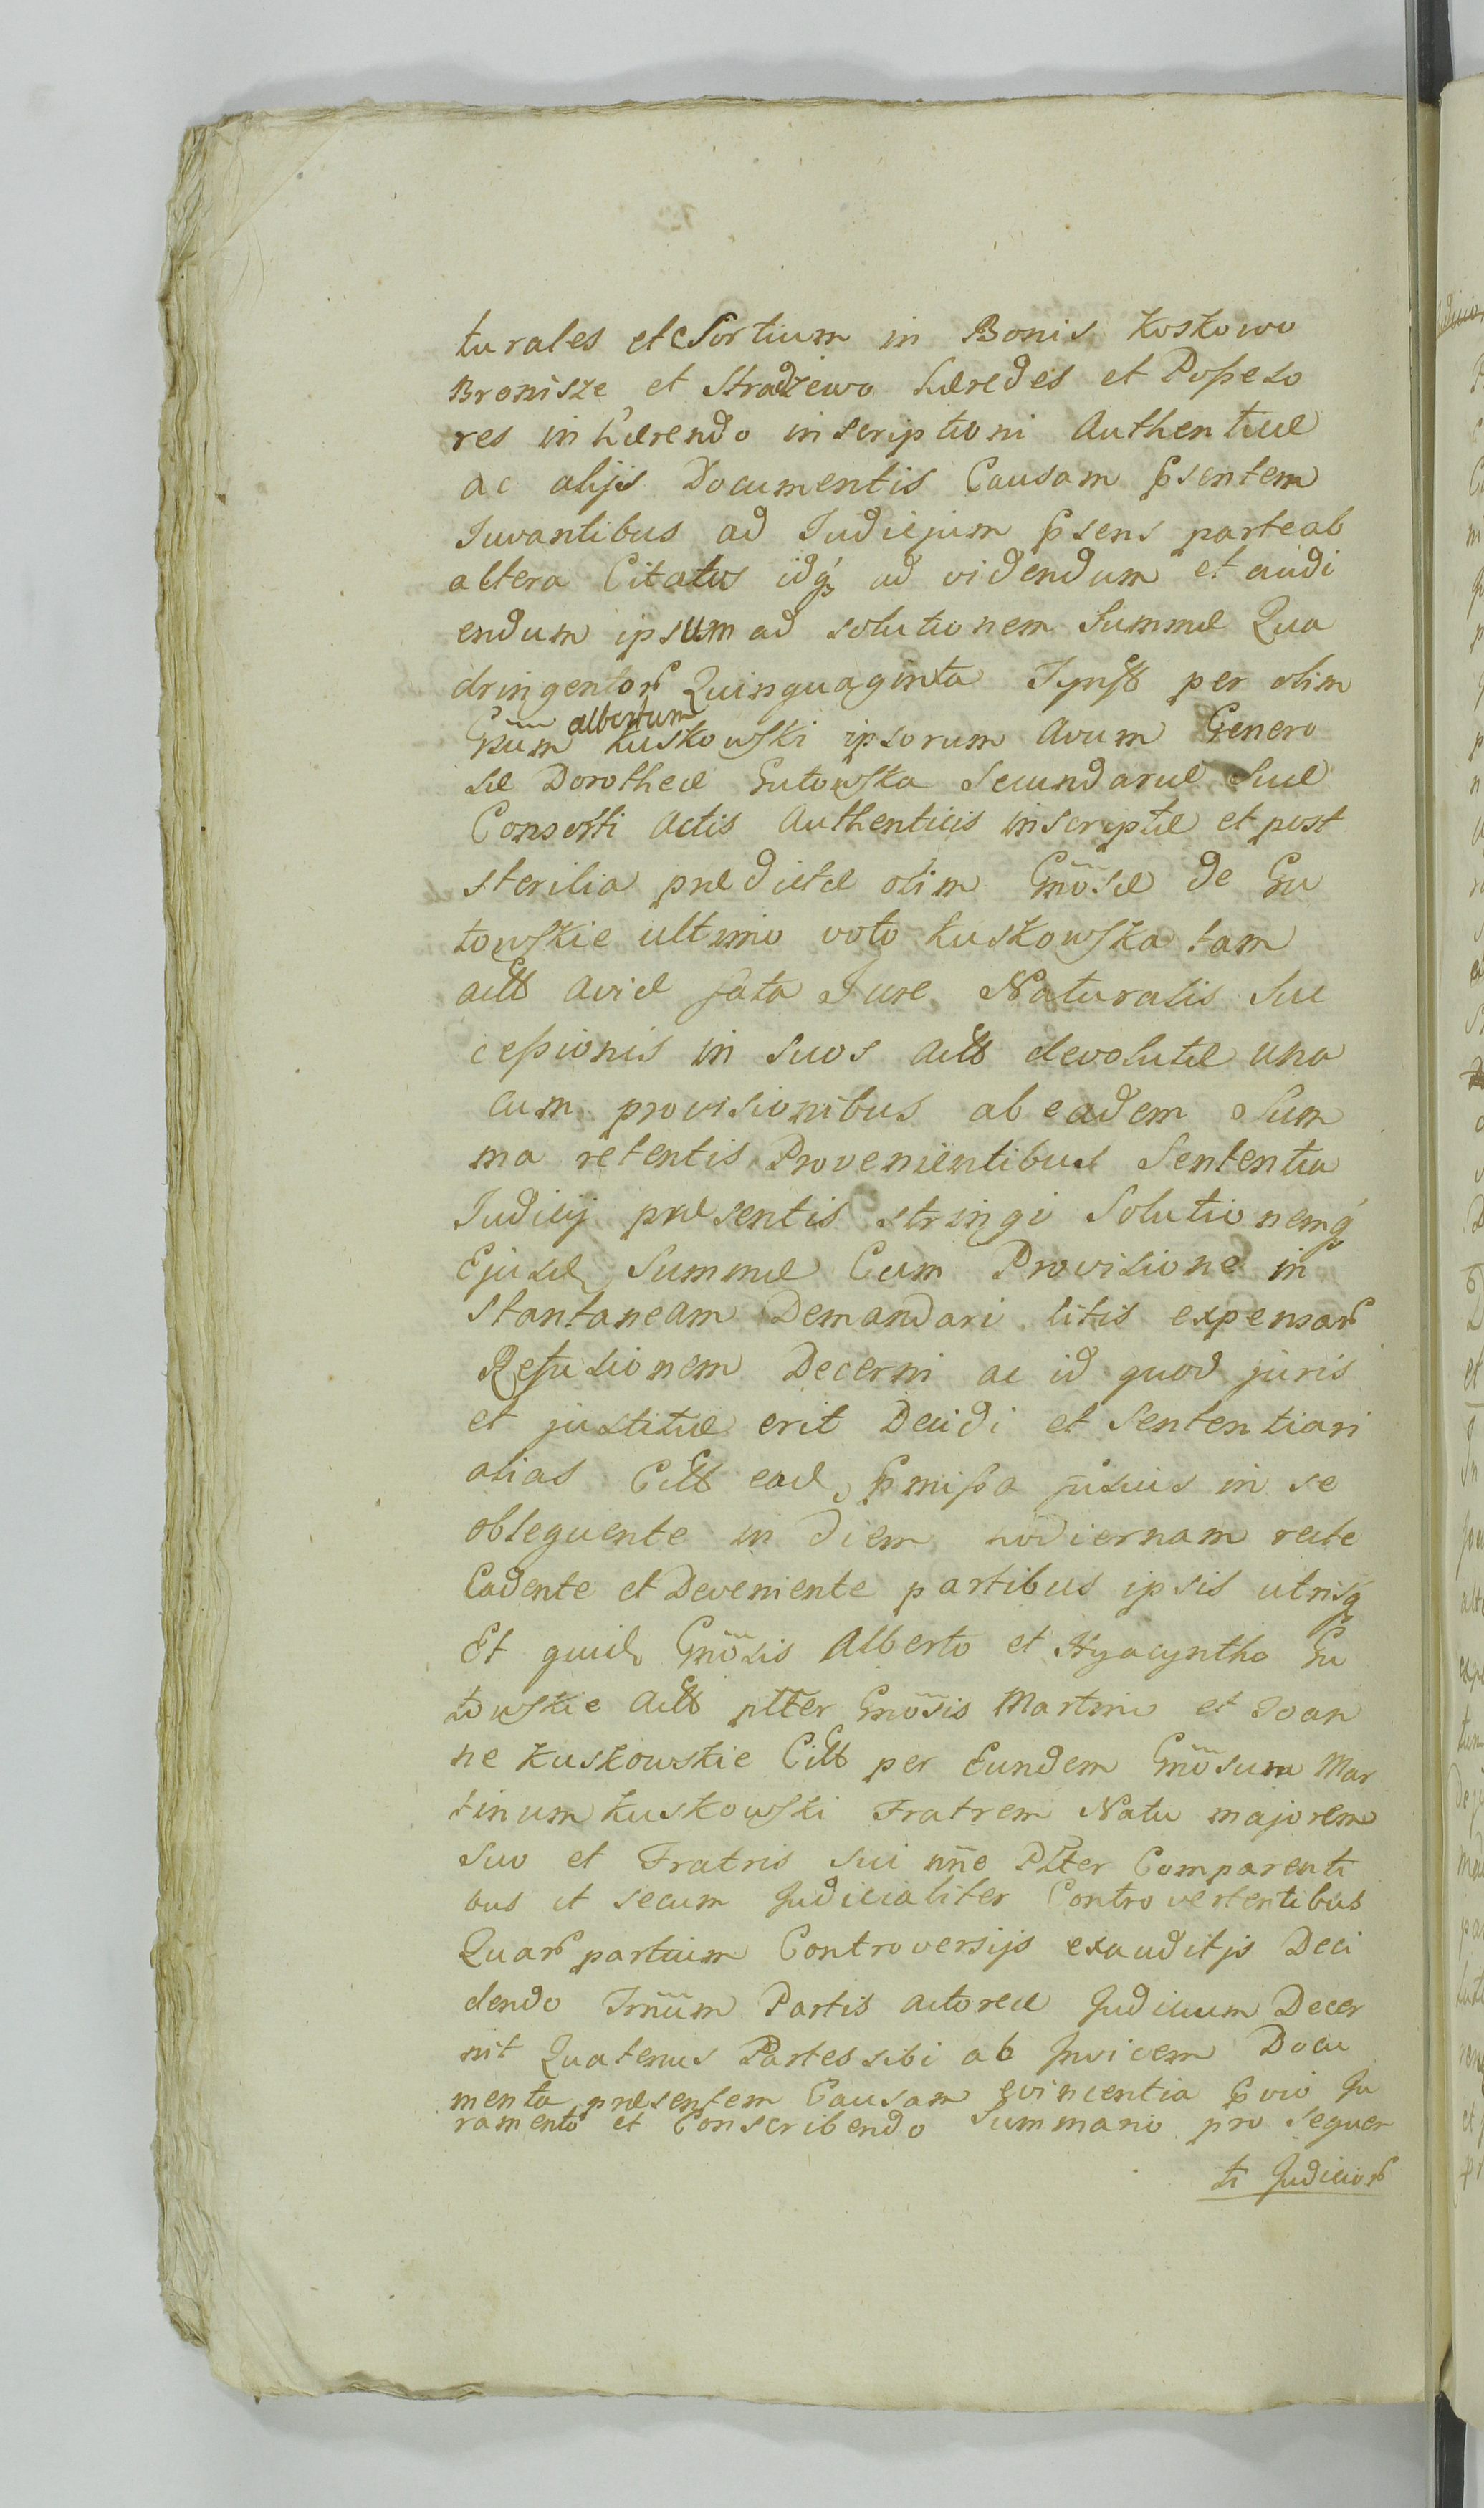 turales et Sortium in Bonis Koskowo
Bronisze et Stradzewo hæredes et Poßeso
res inhærendo inscriptioni Authenticæ
ac alijs Documentis Causam psentem
Juvantibus ad Judicium psens parte ab
altera Citatos idq, ad videndum et audi
endum ipsum ad solutionem Summæ Qua
dringentor Quinquaginta Tynff per olim
Gnum albertum Kuskowski ipsorum avum Genero
sæ Dorotheæ Gutowska Secundariæ Suæ
Consorti actis Authenticis inscriptæ et post
sterilia prædictæ olim Gnosæ de Gu
towskie ultimo voto Kuskowska tam
actt aviæ fata Jure Naturalis Suc
ceßionis in suos actt devolutæ una
cum provisionibus ab eadem Sum
ma retentis Provenientibus Sententia
Judicij præsentis stringi Solutionemq
Ejusd Summæ Cum Provisione in
stantaneam Demandari litis expensar
Refusionem Decerni ac id quod juris
et justitiæ erit Decidi et Sententiari
alias Citt ead pmißa in se
obsequente in diem hodiernam recte
Cadente et Deveniente partibus ipsis utrisq
Et quid Gnosis Alberto et Hyacyntho Gu
towskie actt ptter Gnosis Martino et Joan
ne Kuskowskie Citt per Eundem Gnosum Mar
tinum Kuskowski Fratrem Natu majorem
Suo et Fratris sui nne Ptter Comparenti
bus et secum Judicialiter Controvertentibus
Quar partium Controversijs exauditis Deci
dendo Trnum Partis actoreæ Judicium Decer
nit Quatenus Partes sibi ab Invicem Docu
menta præsentem Causam evincentia pvio Ju
ramento et Conscribendo Summario pro sequen
ti Judicior